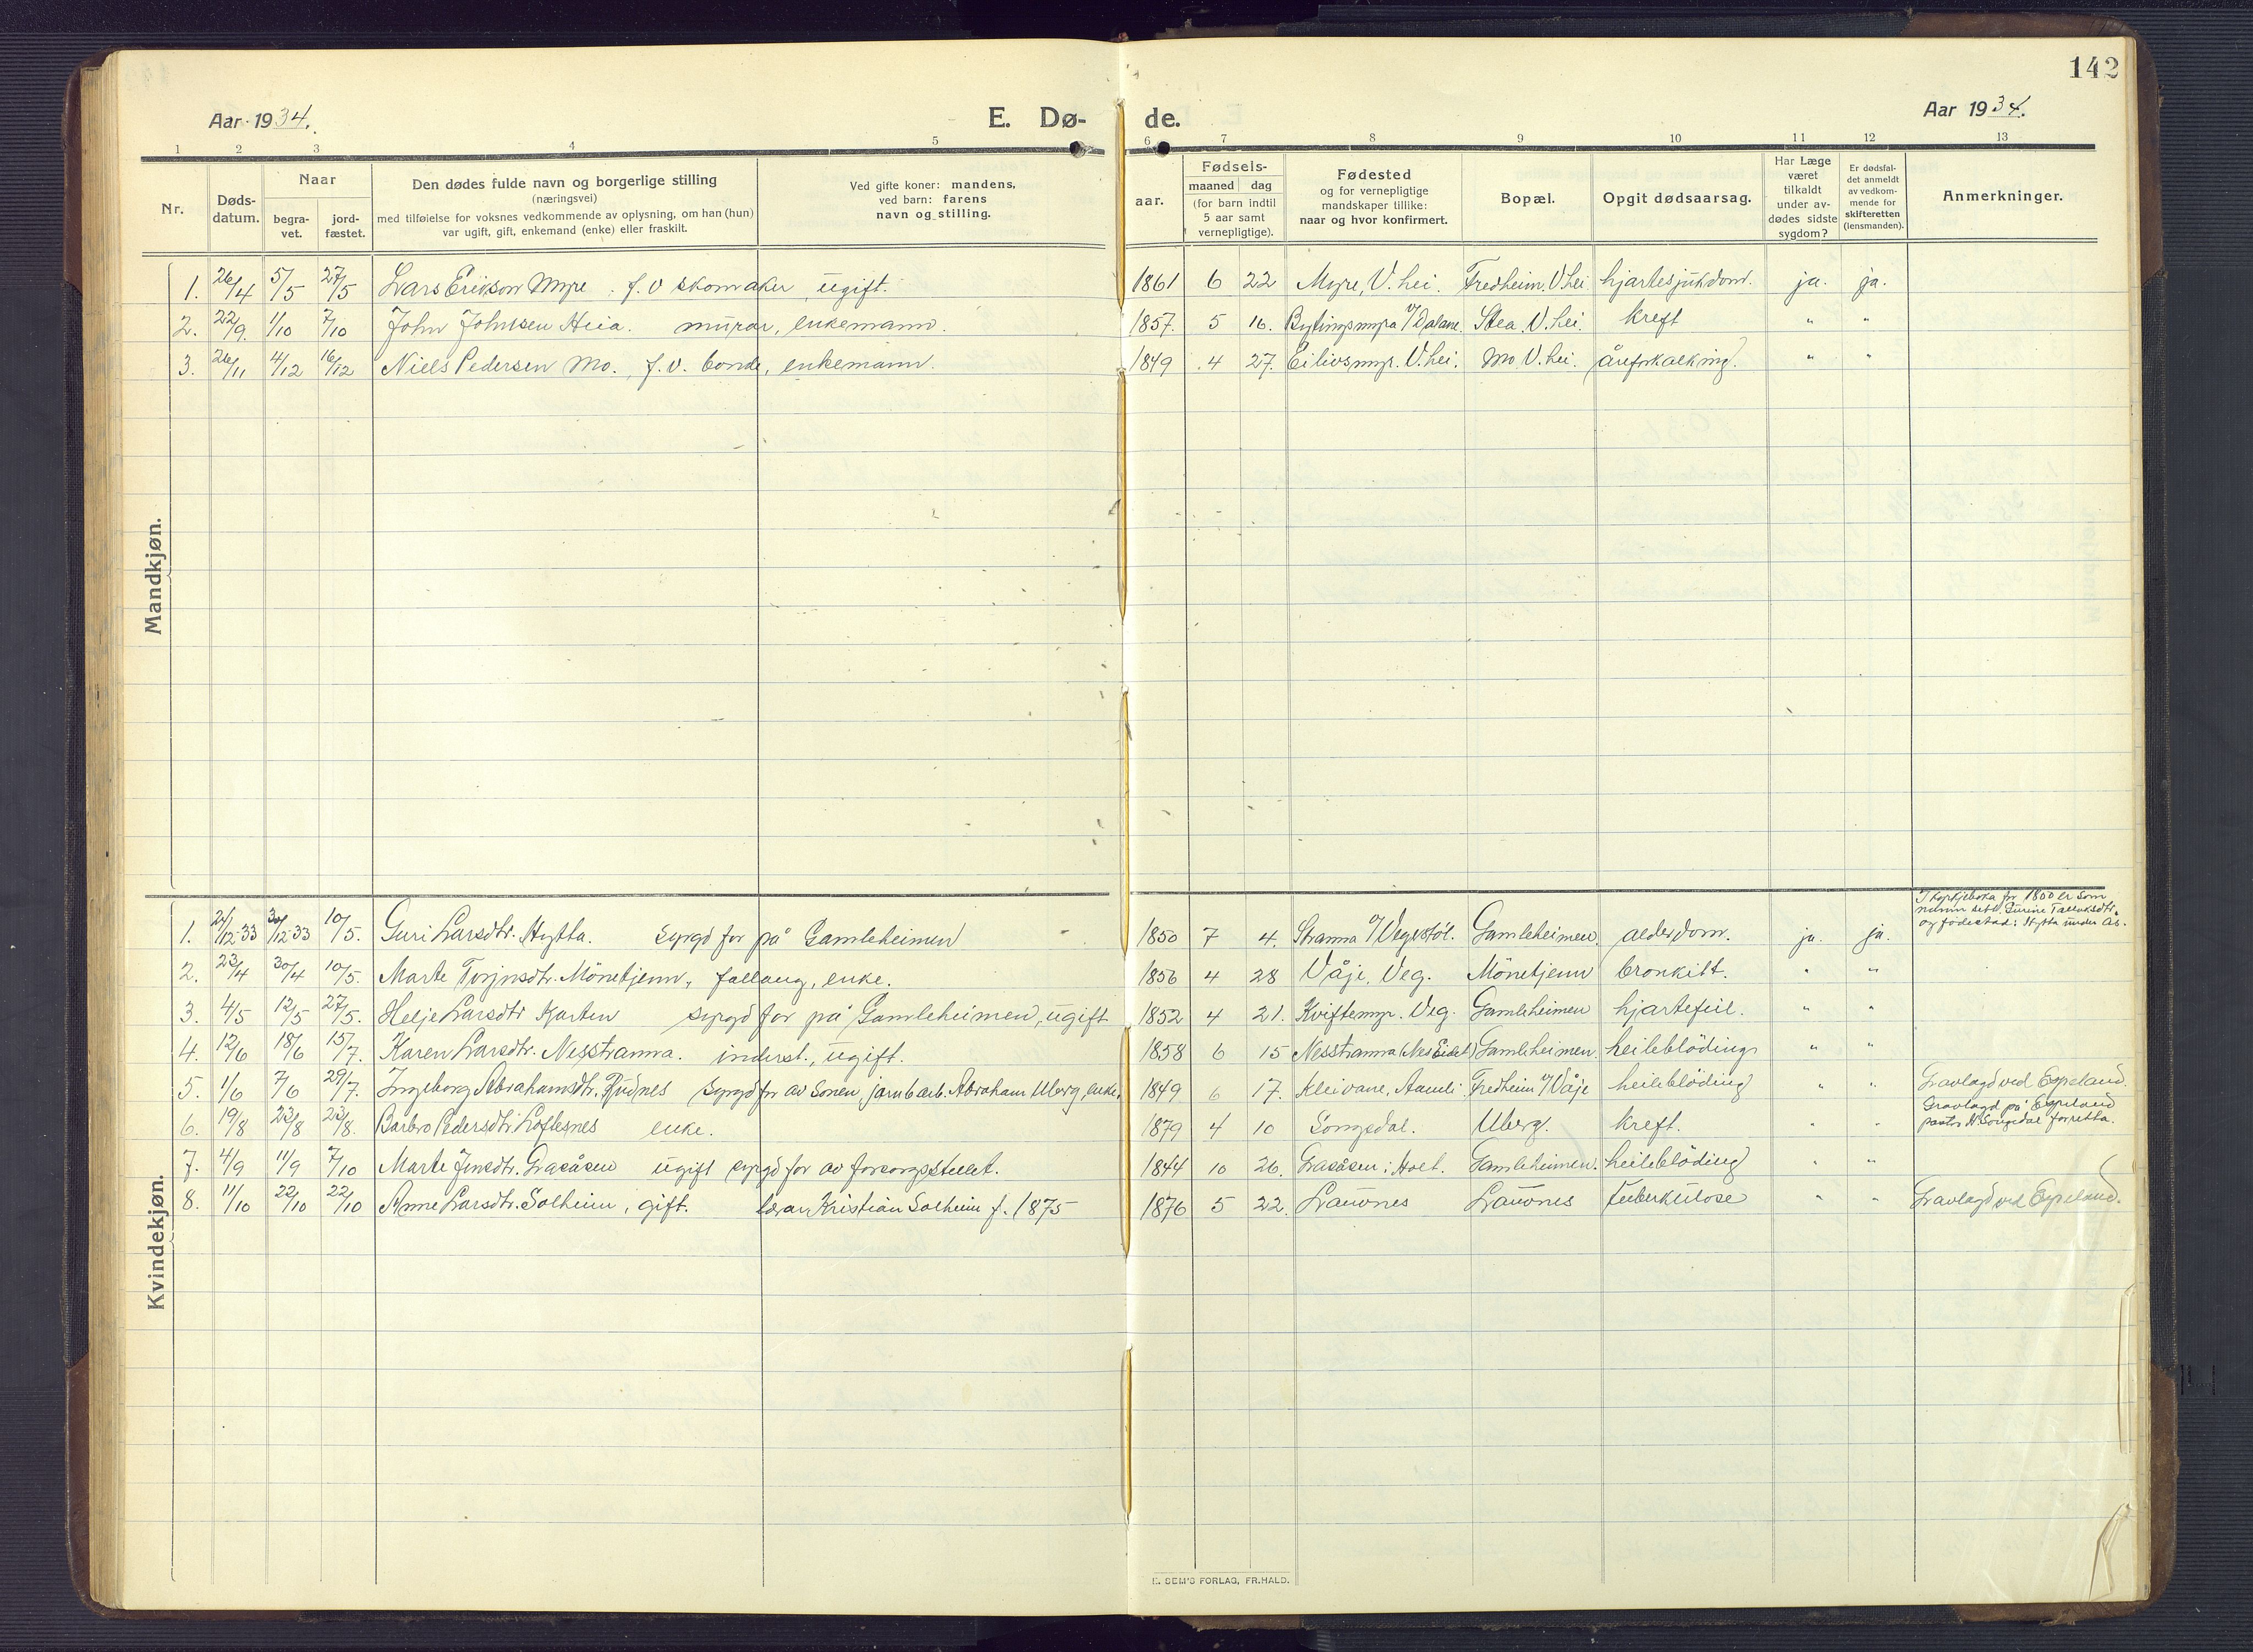 142
Aar 1934.
E. Dø-
de.
Aar 1934.
1 2 3 4 5 6 7 8 9 10 11 12 13
Nr.
Døds-
datum.
Naar
begra-
vet.
jord-
fæstet.
Den dødes fulde navn og borgerlige stilling
(næringsvei)
med tilføielse for voksnes vedkommende av oplysning, om han (hun)
var ugift, gift, enkemand (enke) eller fraskilt.
Ved gifte koner: mandens,
ved barn: farens
navn og stilling.
aar.
Fødsels-
maaned dag
(for barn indtil
5 aar samt
vernepligtige).
Fødested
og for vernepligtige
mandskaper tillike:
naar og hvor konfirmert.
Bopæl.
Opgit dødsaarsag.
Har Læge
været
tilkaldt
under av-
dødes sidste
sygdom?
Er dødsfal-
det anmeldt
av vedkom-
mende for
skifteretten
(lensmanden).
Anmerkninger.
Mandkjøn.
1. 26/4 5/5 27/5 Lars Erikson Myre. f.v skomaker, ugift. 1861 6 22 Myre, V.hei. Fredheim, V.hei hjartesjukdom. ja. ja.
2. 22/9 1/10 7/10 John Johnsen Heia. murar, enkemann. 1857. 5 16. Stea, V.hei. kreft " "
3. 26/11 4/12 16/12 Niels Pedersen Mo., f.v. bonde, enkemann. 1849 4 27. Eilivsmyr. V.hei. Mo, V.hei. åreforkalking. " "
Kvindekjøn.
1. 24/12-33 30/12-33 10/5. Guri Larsdtr. Hytta. Syrgd for på Gamleheimen 1850 7 4. Stranna Gamleheimen. alderdom. ja. ja. I kyrkjeboka for 1800 er som
namn sett Gurine Tallaksdtr.
og fødestad: Hytta under Ås.
2. 23/4 30/4 10/5. Marte Mönetjenn, fallaug, enke. 1856 4 28 Våje, Veg. Mönetjenn bronkitt. " "
3. 4/5 12/5 27/5. Helje Larsdtr Kjorten syrgd for på Gamleheimen, ugift 1852 4 21. Kviftemyr. Veg. Gamleheimen hjartefeil. " "
4. 12/6 18/6 15/7. Karen Larsdtr. Nesstranna. inderst., ugift. 1858 6 15 Nesstranna (Nes Eidet) Gamleheimen. heileblöding " "
5. 1/6 7/6 29/7. Ingeborg Abrahamsdtr. Rudnes Syrgd for av sonen, jarnb.arb. Abraham Uberg, enke. 1849 6 17. Kleivane, Aamli Fredheim u/Våje heileblöding " " Gravlagd ved Espeland.
6. 19/8 23/8 23/8. Barbro Pedersdtr. Loftesnes enke. 1879 4 10 Songedal. Uberg. kreft. " " Gravlagd på Espeland
pastor N. Songedal forretta.
7. 4/9 11/9 7/10 Marte Jensdtr. Grasåsen ugift syrgd for av forsorgsstellet. 1844 10 26. Grasåsen i Holt. Gamleheimen. heileblöding " "
8. 11/10 22/10 22/10 Anne Larsdtr. Solheim, gift. lærar Kristian Solheim f. 1875 1876 5 22. Lauvnes Lauvnes tuberkulose " " Gravlagd ved Espeland.
E. SEM'S FORLAG, FR.HALD.